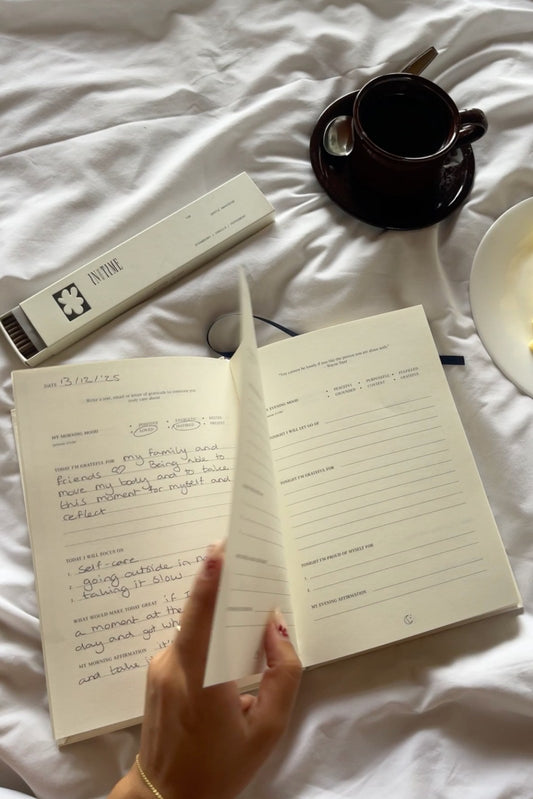 IN THE TIME
DATE 13/12/'25
Write a text, email or letter of gratitude to someone you
truly care about
MY MORNING MOOD
TODAY I'M GRATEFUL FOR my family and
friends ♡ Being able to
move my body and to take
this moment for myself and
reflect
TODAY I WILL FOCUS ON
1. self-care
2. going outside in
3. taking it slow
WHAT WOULD MAKE TODAY GREAT if I
a moment at the
day and get
MY MORNING AFFIRMATION it's
and take
"You cannot be lonely if you like the person you are alone with."
Wayne Dyer
EVENING MOOD
PEACEFUL PURPOSEFUL FULFILLED
GROUNDED CONTENT GRATEFUL
TONIGHT I WILL LET GO OF
TONIGHT I'M GRATEFUL FOR
TONIGHT I'M PROUD OF MYSELF FOR
1.
2.
MY EVENING AFFIRMATION